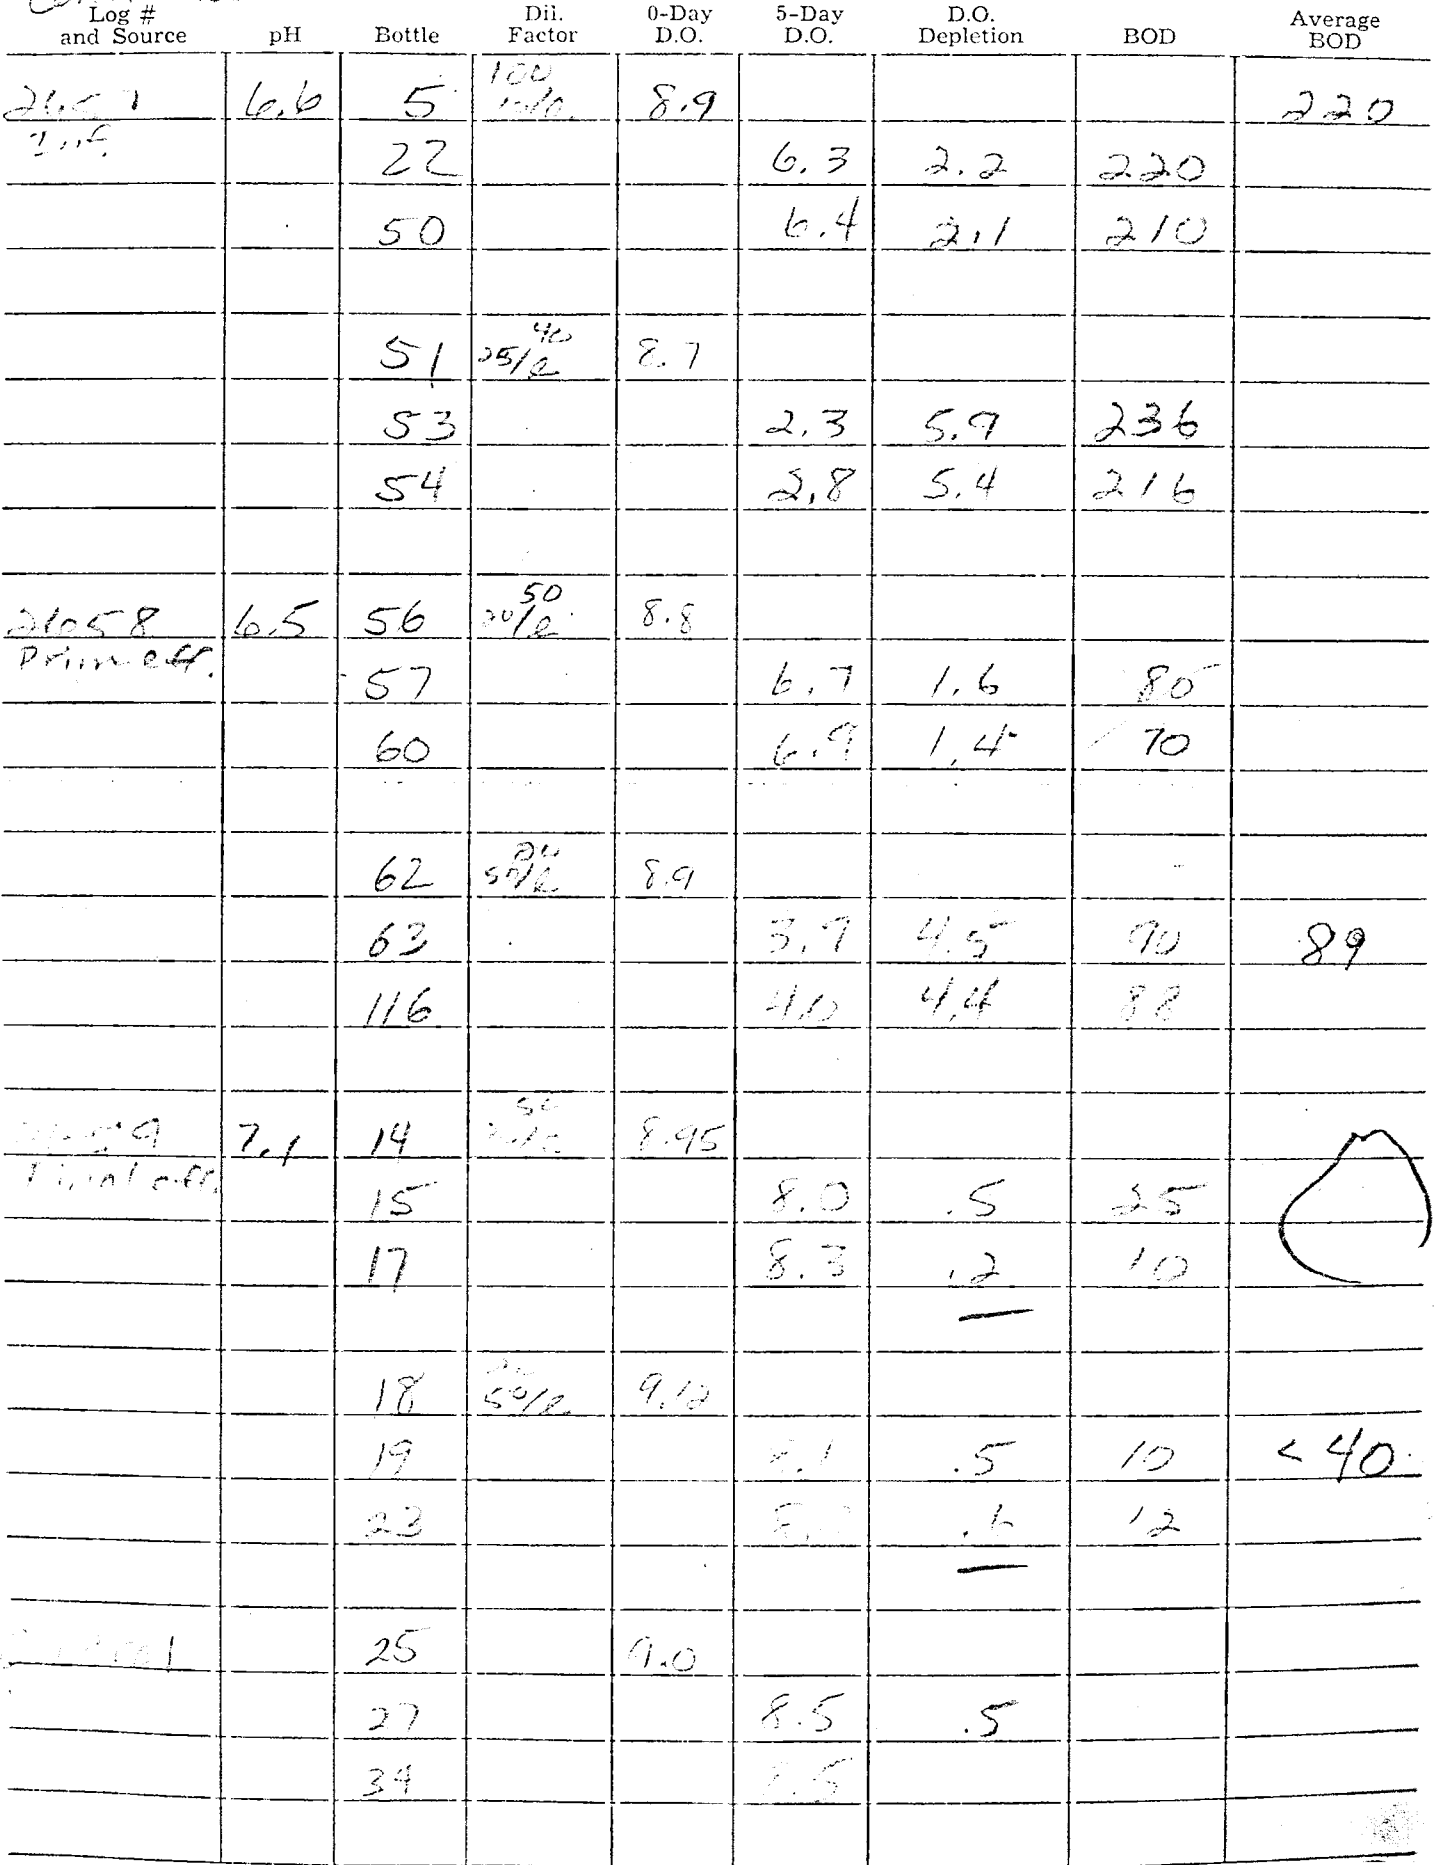 Log # and Source pH Bottle Dil. Factor 0-Day D.O. 5-Day D.O. D.O. Depletion BOD Average BOD
6.6 5 100 8.9 220
Inf. 22 6.3 2.2 220
50 6.4 2.1 210
51 40 25/l 8.7
53 2.3 5.9 236
54 2.8 5.4 216
26058 6.5 56 50 20/l 8.8
Prim eff. 57 6.7 1.6 80
60 6.9 1.4 70
62 20 50/l 8.9
63 3.9 4.5 90 89
116 4.0 4.4 88
7.1 14 50 8.95
Final eff. 15 8.0 .5 25
17 8.3 .2 10
18 50/l 9.12
19 8.1 .5 10 <40
23 .6 12
Control 25 9.0
27 8.5 .5
34 8.5